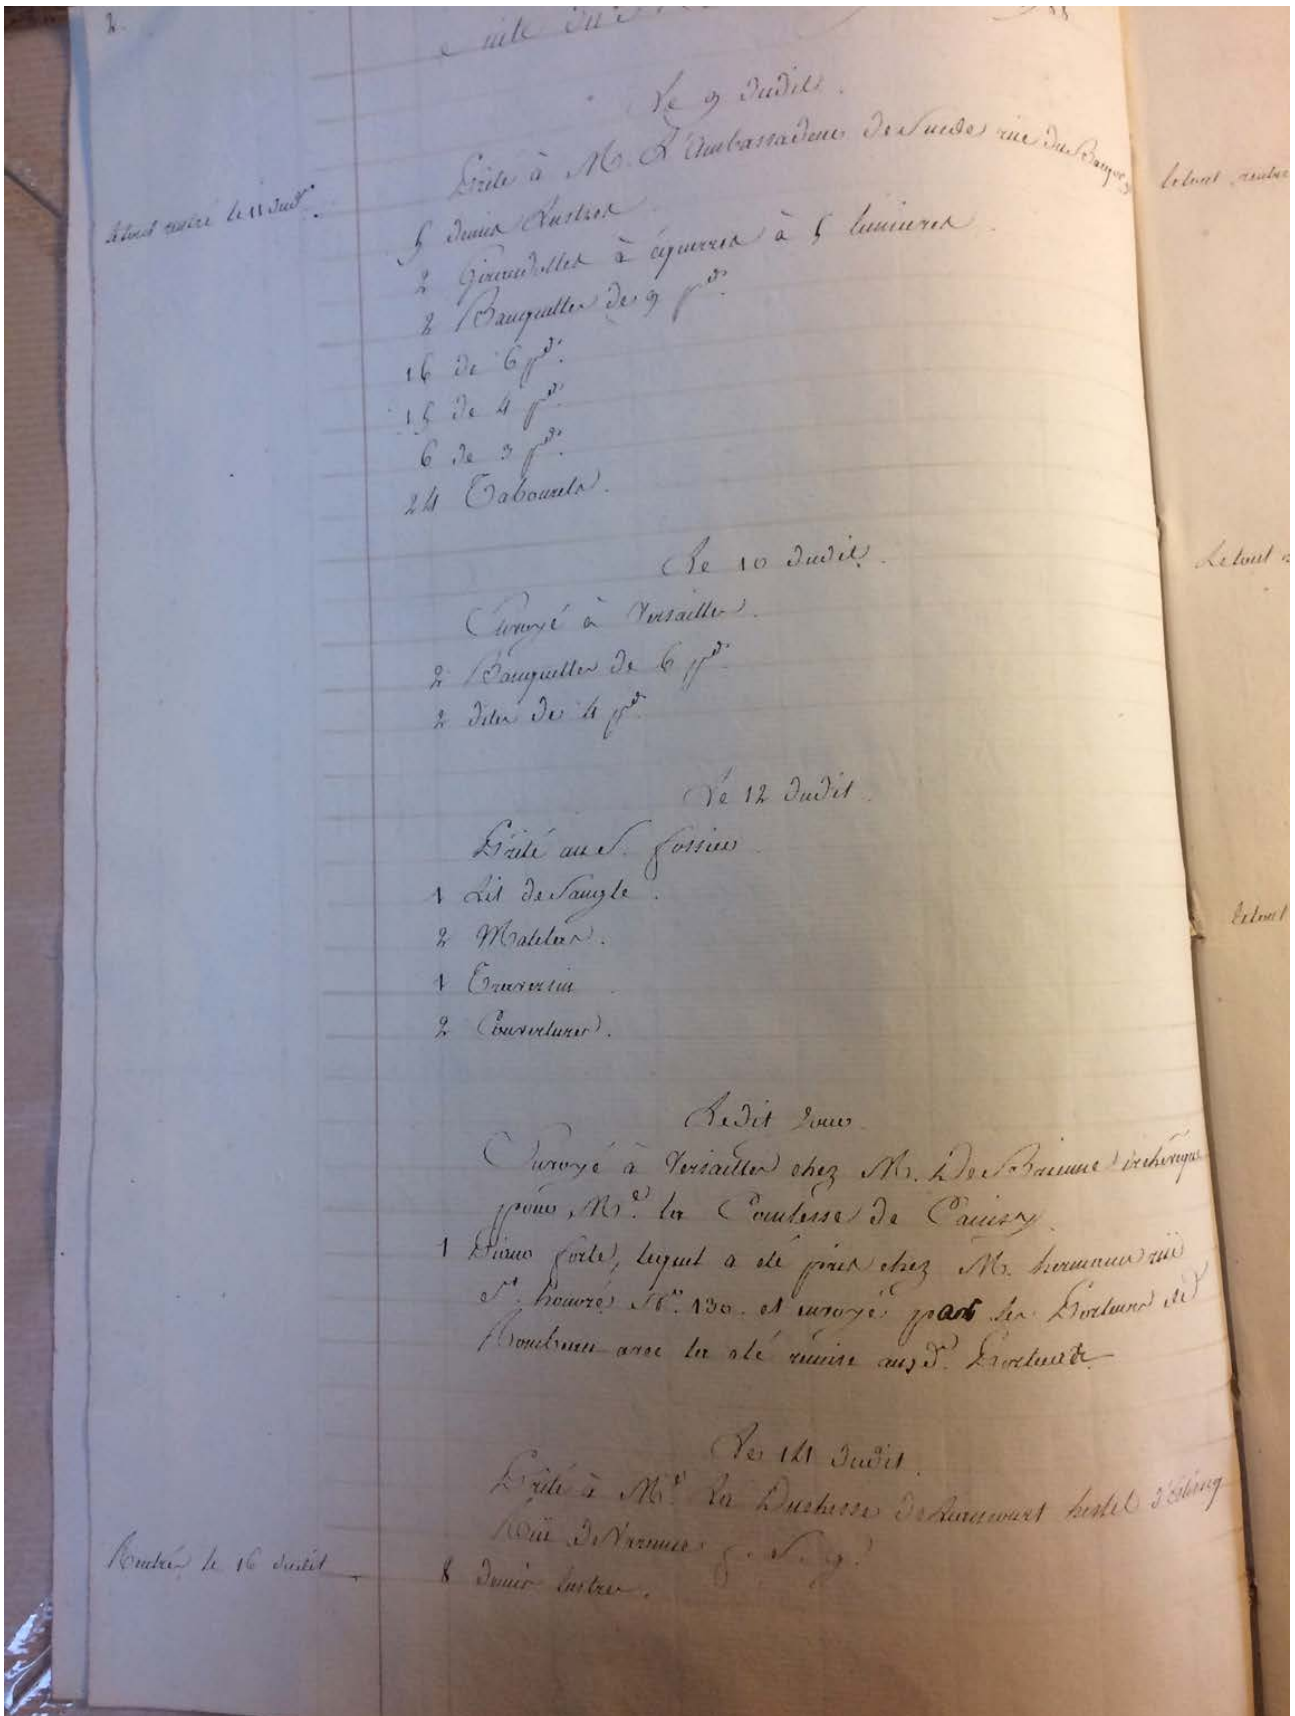 2.
Suite du
Le 9 dudit.
Prêté à M. L'Ambassadeur de Suede rue du Bacq
le tout rentré le 11 dud.
5 demies Lustres
2 Girandolles à equerres à 5 lumieres.
2 Banquettes de 9 pds.
16 de 6 pds.
15 de 4 pds.
6 de 3 pds.
24 Tabourets.
Le 10 dudit.
Envoyé à Versailles.
2 Banquettes de 6 pds.
2 dites de 4 pds.
Le 12 dudit.
Prêté au S. fossier
1 Lit de Sangle.
2 Matelas.
1 Traversin
2 Couvertures.
Ledit Jour
Envoyé à Versailles chez M. De Brienne archévêque
pour Me. la Comtesse de Canisy.
1 Piano forté, lequel a été pris chez M. hermann rüe
St. honoré No. 130. et envoyé par les Porteurs de
avec la clé remise auxd. Porteurs
Le 14 dudit.
Prêté à Me. La Duchesse de hostel d'
Rüe De Varenne f. S. g.
Rentrés le 16 dudit
8 demis lustres.
le tout rentré
Le tout
le tout